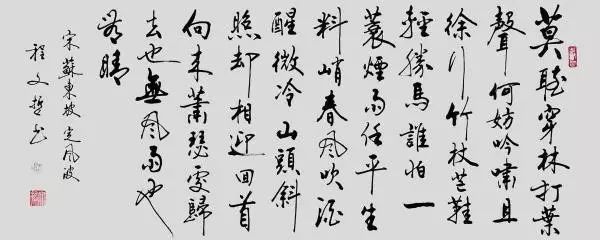 莫聽穿林打葉
聲何妨吟嘯且
徐行竹杖芒鞋
輕勝馬誰怕一
蓑煙雨任平生
料峭春風吹酒
醒微冷山頭斜
照却相迎回首
向來蕭瑟處歸
去也無風雨也
無晴
宋蘇東坡定風波
程文哲书